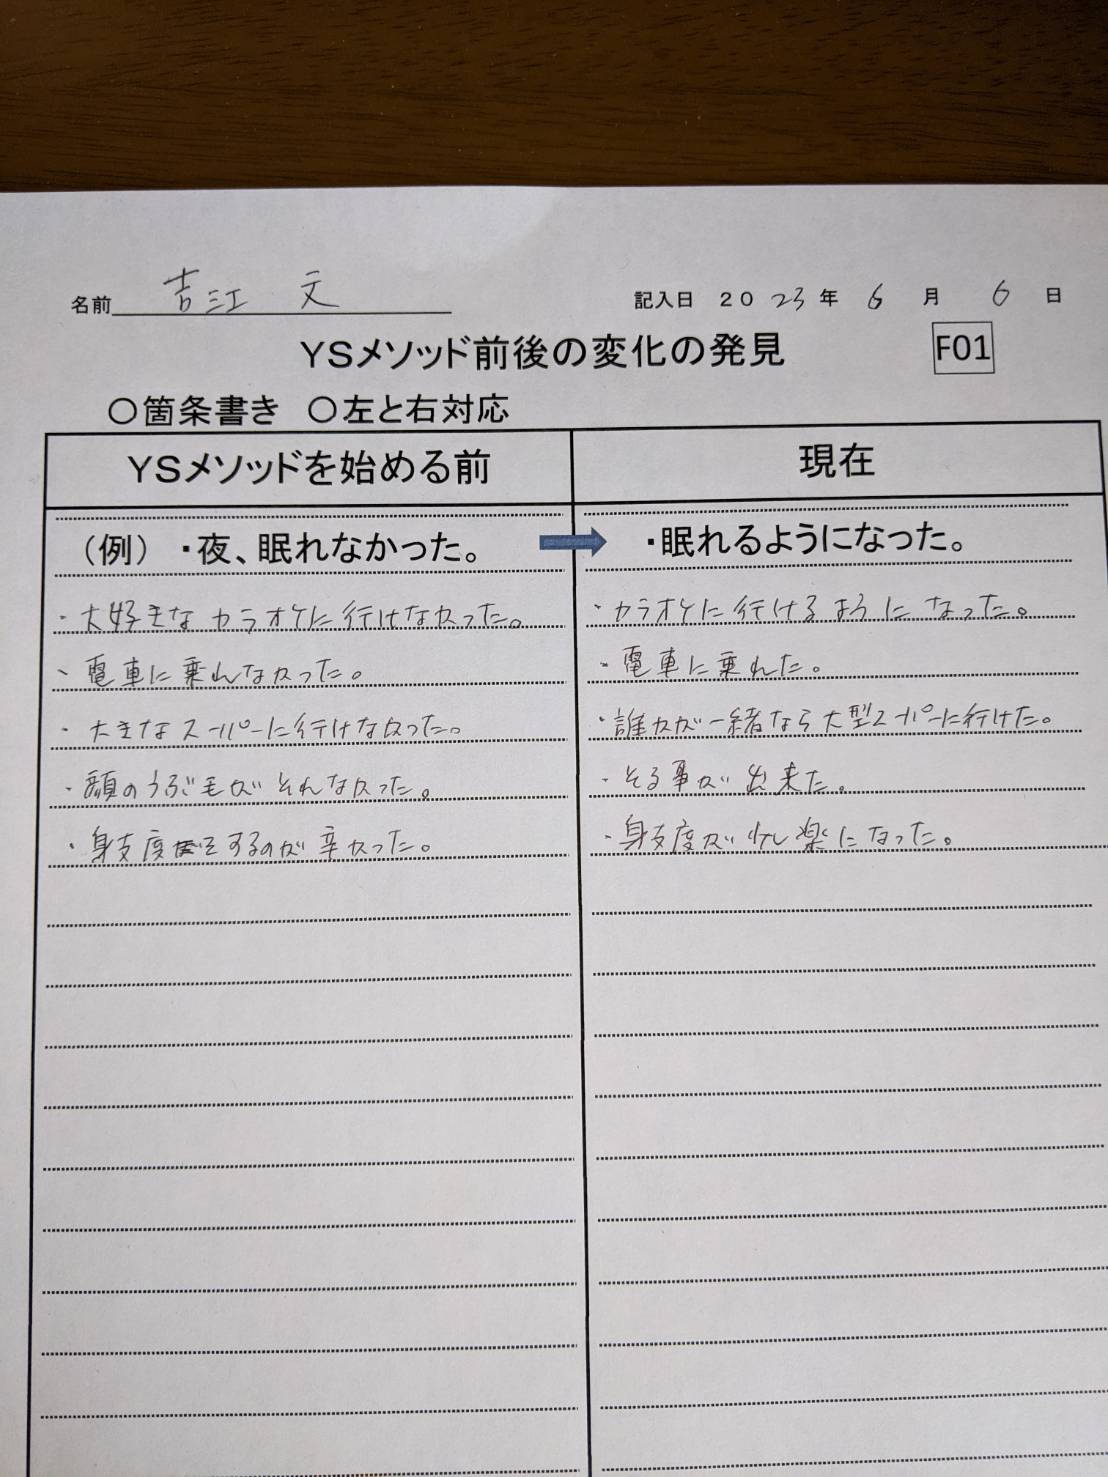 名前 吉江 文 記入日 2023年 6月 6日
YSメソッド前後の変化の発見 F01
○箇条書き ○左と右対応
YSメソッドを始める前 現在
(例) ・夜、眠れなかった。 ・眠れるようになった。
・大好きなカラオケに行けなかった。 ・カラオケに行けるようになった。
・電車に乗れなかった。 ・電車に乗れた。
・大きなスーパーに行けなかった。 ・誰かが一緒なら大型スーパーに行けた。
・顔のうぶ毛がそれなかった。 ・そる事が出来た。
・身支度をするのが辛かった。 ・身支度が少し楽になった。